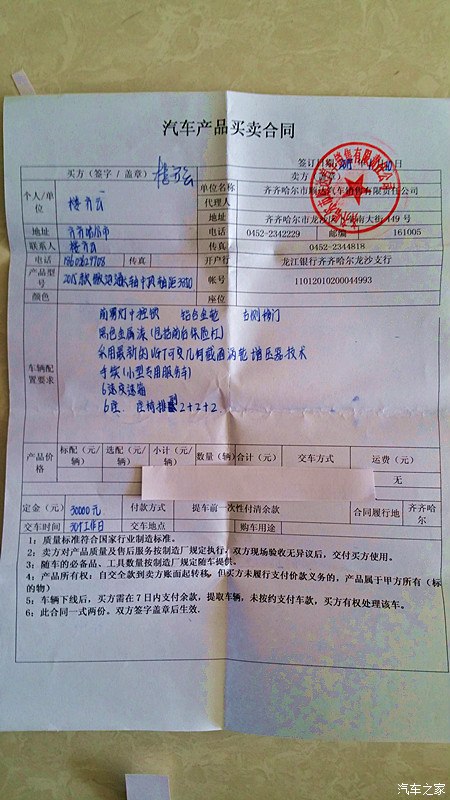 汽车产品买卖合同
签订日期 日
买方（签字／盖章） 卖方
个人/单位 楼方云 单位名称 齐齐哈尔市顺达汽车销售有限责任公司
代理人
地址 齐齐哈尔市龙沙 南大街149号
地址 齐齐哈尔市 电话 0452-2342229 邮编 161005
联系人 楼方云 传真 0452-2344818
电话 传真 开户行 龙江银行齐齐哈尔龙沙支行
产品型号 2015款 帐号 11012010200044993
颜色 座位
车辆配置要求
前雾灯中控锁 铝合金轮 右侧移门
黑色金属漆（包括前后保险杠）
采用最新的 可变几何截面涡轮增压器技术
手续（小型专用服务车）
6速变速箱
6座. 座椅排 2+2+2.
产品价格 标配（元/辆） 选配（元/辆） 小计（元/辆） 数量（辆） 合计（元） 交车方式 运费（元）
无
定金（元） 30000元 付款方式 提车前一次性付清余款 合同履行地 齐齐哈尔
交车时间 30个工作日 交车地点 购车用途
1：质量标准符合国家行业制造标准。
2：卖方对产品质量及售后服务按制造厂规定执行，双方现场验收无异议后，交付买方使用。
3：随车的必备品、工具数量按制造厂规定随车提供。
4：产品所有权：自交全款到卖方账面起转移，但买方未履行支付价款义务的，产品属于甲方所有（标的物）
5：车辆下线后，买方需在7日内支付余款，提取车辆，未按约支付车款，买方有权处理该车。
6：此合同一式两份。双方签字盖章后生效.
汽车之家